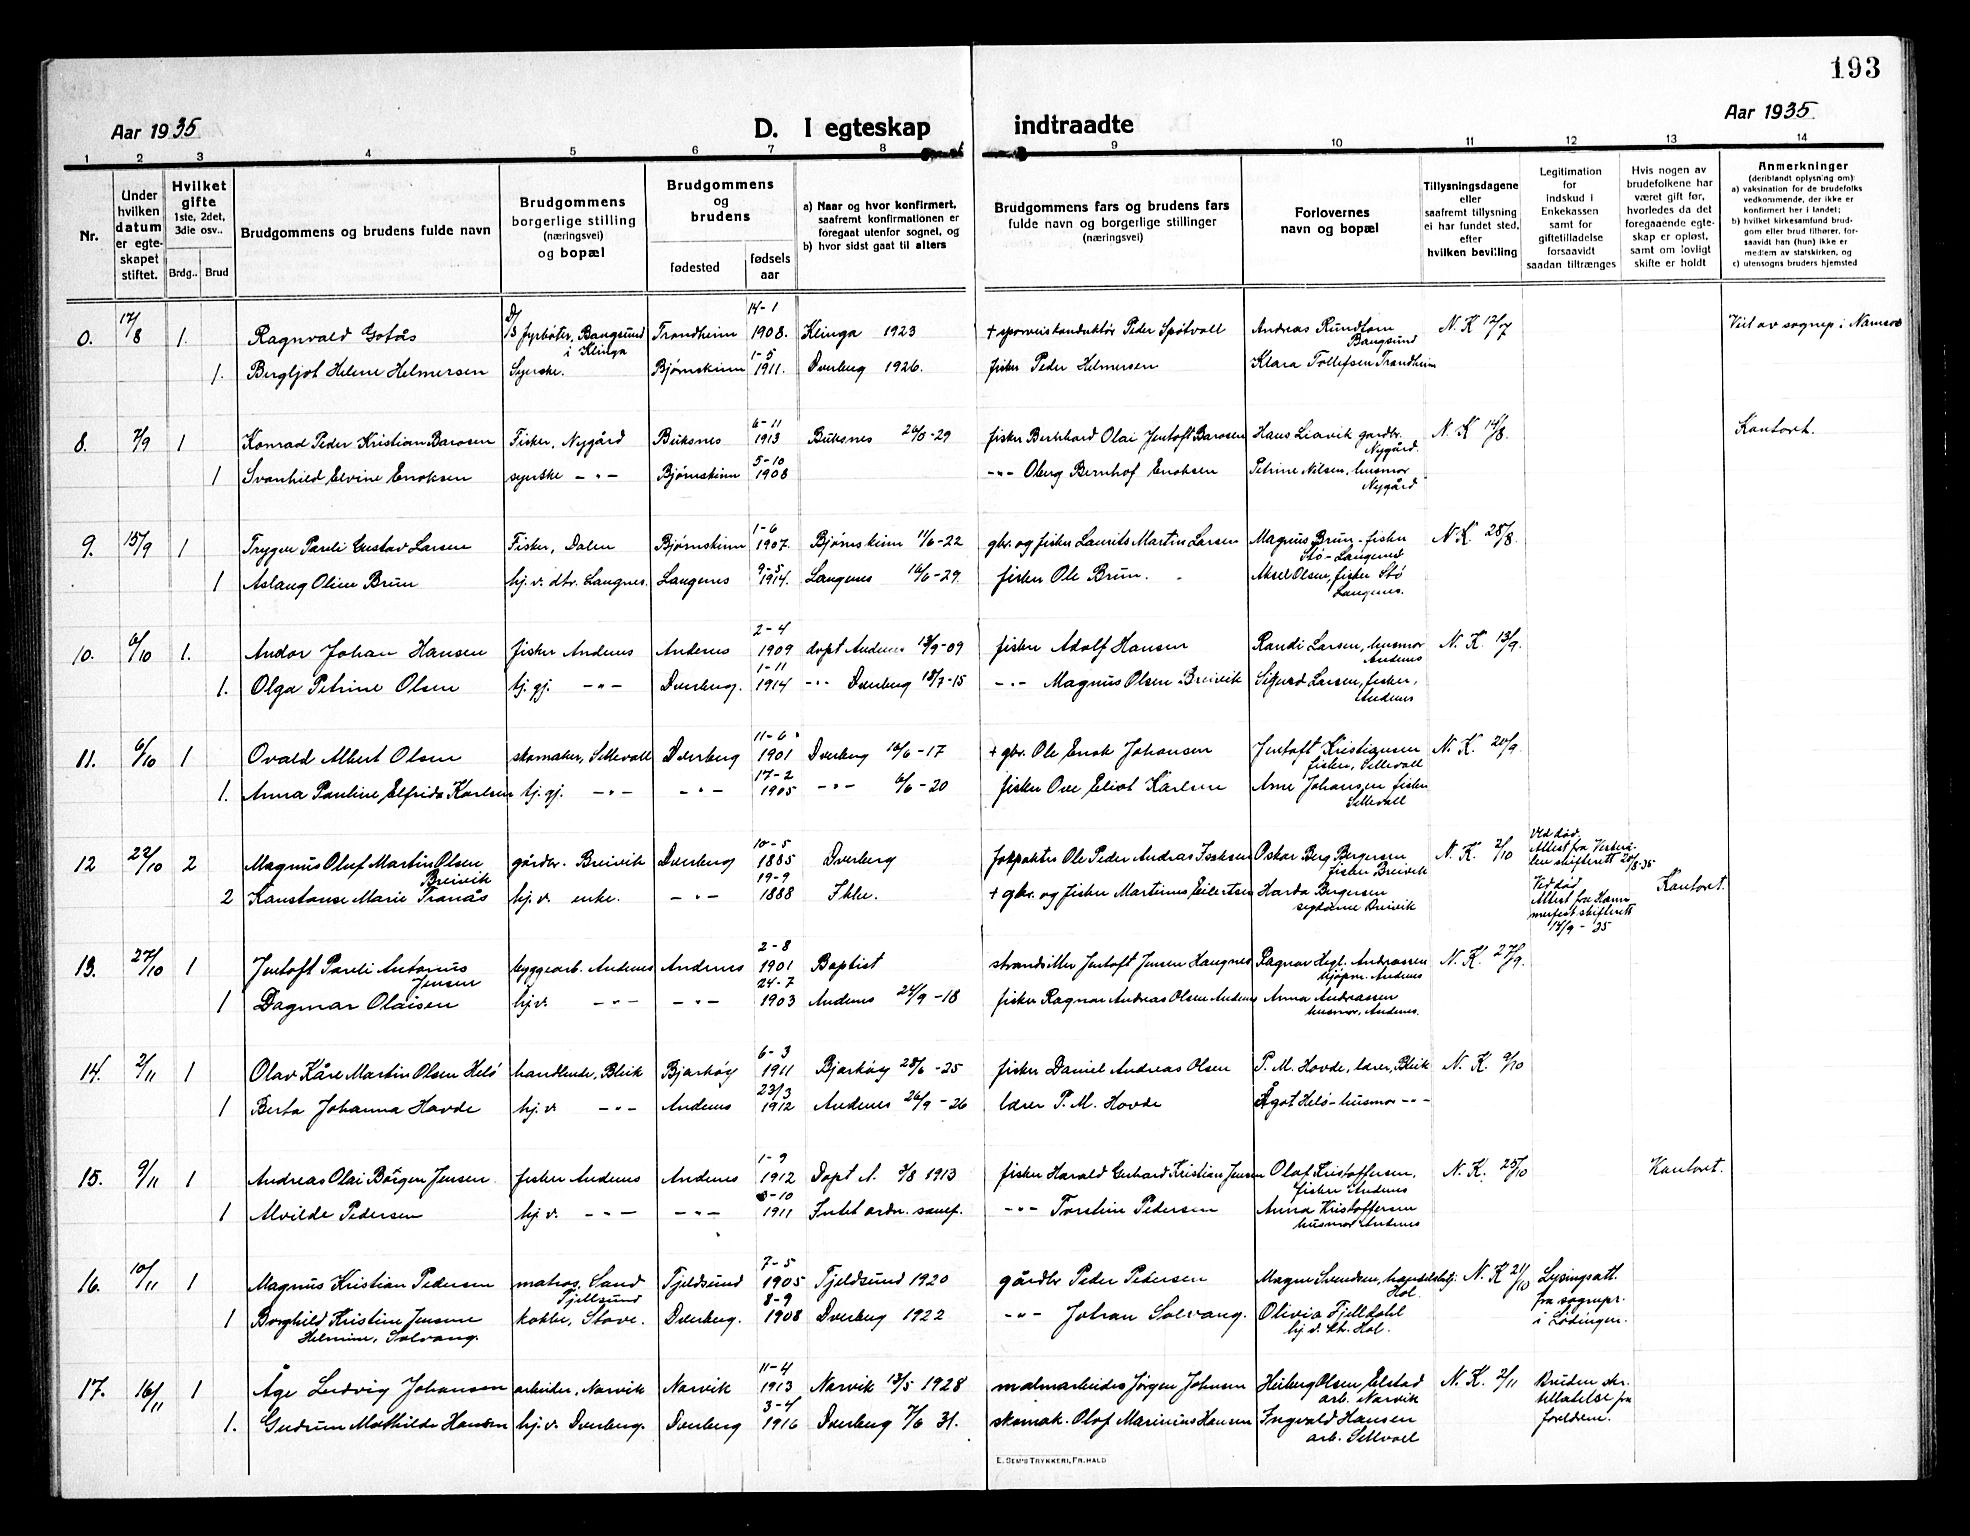 193
Aar 1935
D. I egteskap indtraadte
Aar 1935
1 2 3 4 5 6 7 8 9 10 11 12 13 14
Nr.
Under hvilken datum er egteskapet stiftet.
Hvilket gifte 1ste, 2det, 3die osv..
Brdg.. Brud
Brudgommens og brudens fulde navn
Brudgommens borgerlige stilling (næringsvei) og bopæl
Brudgommens og brudens
fødested
fødsels aar
a) Naar og hvor konfirmert, saafremt konfirmationen er foregaat utenfor sognet, og
b) hvor sidst gaat til alters
Brudgommens fars og brudens fars fulde navn og borgerlige stillinger (næringsvei)
Forlovernes navn og bopæl
Tillysningsdagene eller saafremt tillysning ei har fundet sted, efter hvilken bevilling
Legitimation for Indskud i Enkekassen samt for giftetilladelse forsaavidt saadan tiltrænges
Hvis nogen av brudefolkene har været gift før, hvorledes da det foregaaende egteskap er opløst, samt om lovligt skifte er holdt
Anmerkninger (deriblandt oplysning om):
a) vaksination for de brudefolks vedkommende, der ikke er konfirmert her i landet;
b) hvilket kirkesamfund brudgom eller brud tilhører, forsaavidt han (hun) ikke er medlem av statskirken, og
c) utensogns bruders hjemsted
0. 17/8 1. Ragnvald Gotås D/S fyrbøter, Bangsund i Klinga Trondheim 14-1 1908. Klinga 1923 + sporveiskonduktør Peder Spøtvoll Andreas Rundtom Bangsund N. K 12/7 Viet av sognep. i Namsos
1. Bergljot Helene Helmersen Syerske. Bjørnskinn 1-5 1911. Dverberg 1926. fisker Peder Helmersen Klara Tollefsen Trondheim
8. 7/9 1 Konrad Peder Kristian Barosen Fisker, Nygård Buksnes 6-11 1913 Buksnes 26/8-29 fisker Berkhard Olai Jentoft Barosen Hans Liavik gardbr. Nygård. N. K 14/8 Kontoret.
1 Svanhild Elvine Enoksen syerske -"- Bjørnskinn 5-10 1908 -"- Oberg Bernhof Enoksen Petrine Nilsen, husmor Nygård
9. 15/9 1 Trygve Pareli Gustav Larsen Fisker, Dalen Bjørnskinn 1-6 1907. Bjørnskinn 11/6-22 gbr. og fisker Laurits Martin Larsen Magnus Brun-fisker Stø-Langenes N. K. 28/8.
1 Aslaug Oline Brun hj.v. dtr. Langnes. Langenes 9-5 1914. Langenes 16/6-29. fisker Ole Brun. Aksel Olsen, fisker Stø Langenes.
10. 6/10 1. Andor Johan Hansen fisker Andenes Andenes 2-4 1909 døpt Andenes 13/9-09 fisker Adolf Hansen Randi Larsen, husmor Andenes N. K. 13/9.
1. Olga Petrine Olsen tj.gj. -"- Dverberg. 1-11 1914 -"- Dverberg 18/7-15 -"- Magnus Olsen Breivik Sigurd Larsen, fisker, Andenes
11. 6/10 1 Ovald Albert Olsen skomaker, Settevoll Dverberg 11-6 1901 Dverberg 16/6-17 + gbr. Ole Enok Johansen Jentoft Kristiansen fisker, Settevoll N. K. 20/9.
1. Anna Pauline, Elfrida Karlsen tj.gj. -"- -"- 17-2 1905 -"- 6/6-20 fisker Ove Eliot Karlsen Arne Johansen fisker Settevoll
12 22/10 2 Magnus Oluf Martin Olsen Breivik gårdbr. Breivik Dverberg 10-5 1885 Dverberg Ole Peder Andreas Isaksen Oskar Berg Bergersen fisker Breivik N. K. 2/10 Ved død. Attest fra Vesterålen skifterett 20/8-35
2 Konstanse Marie Tranås hj.v. enke. -"- 19-9 1888 Ikke. + gbr. og fisker Martinus Eilertsen Harda Bergersen Breivik Ved død Attest fra Hammerfest skifterett 14/9-35 Kontoret.
13. 27/10 1 Jentoft Pareli Antonius Jensen byggearb. Andenes Andenes 2-8 1901 Baptist strandsitter Jentoft Jensen Haugnes Ragnar Hegl. Andreassen kjøpm. Andenes N. K. 27/9.
1 Dagmar Olaisen hj.v. -"- -"- 24-7 1903 Andenes 24/9-18 fisker Ragnar Andreas Olsen Andenes Anna Andreassen husmor, Andenes.
14. 2/11 1 Olav Kåre Martin Olsen Helø handlende, Bleik Bjarkøy 6-3 1911 Bjarkøy 28/6-25 fisker Daniel Andreas Olsen P. M. Hovde, lærer, Bleik N. K. 9/10
1 Berta Johanna Hovde hj.v. -"- Andenes 23/3 1912 Andenes 26/9-26 lærer P. M. Hovde Ågot Helø-husmor -"-
15. 9/11 1 Andreas Olai Børgen Jensen fisker Andenes Andenes 1-9 1912 Døpt A. 3/8 1913 fisker Harald Gerhard Kristian Jensen Olaf Kristoffersen, fisker Andenes N. K. 25/10 Kontoret.
1 Alvilde Pedersen hj.v. -"- -"- 3-10 1911 Intet ordn. samf. -"- Torstein Pedersen Anna Kristoffersen husmor Andenes
16. 10/11 1 Magnus Kristian Pedersen matros, Sand Tjellsund Tjeldsund 7-5 1905 Tjeldsund 1920 gårdbr Peder Pedersen Magne Svendsen, handelsbtj. Hol. N. K 21/10 Lysingsatt. fra sognepr. i Lødingen.
1 Borghild Kristine Jensine Helmine, Solvang. kokke, Stave. Dverberg. 8-9 1908 Dverberg 1922 -"- Johan Solvang. Olivia Fjelldahl hj.v. Hol.
17. 16/11 1 Åge Ludvig Johansen arbeider, Narvik Narvik 11-4 1913 Narvik 13/5 1928 malmarbeider Jørgen Johnsen Heiberg Olsen, Elstad arb. Narvik N. K. 2/11 Bruden skr. tillatelse fra foreldrene.
1. Gudrun Mathilde Hansen hj.v. Dverberg. Dverberg 3-4 1916 Dverberg 7/6 31. skomak. Olof Marinius Hansen Ingvald Hansen arb. Settvoll
E. SEM'S TRYKKERI, FR.HALD